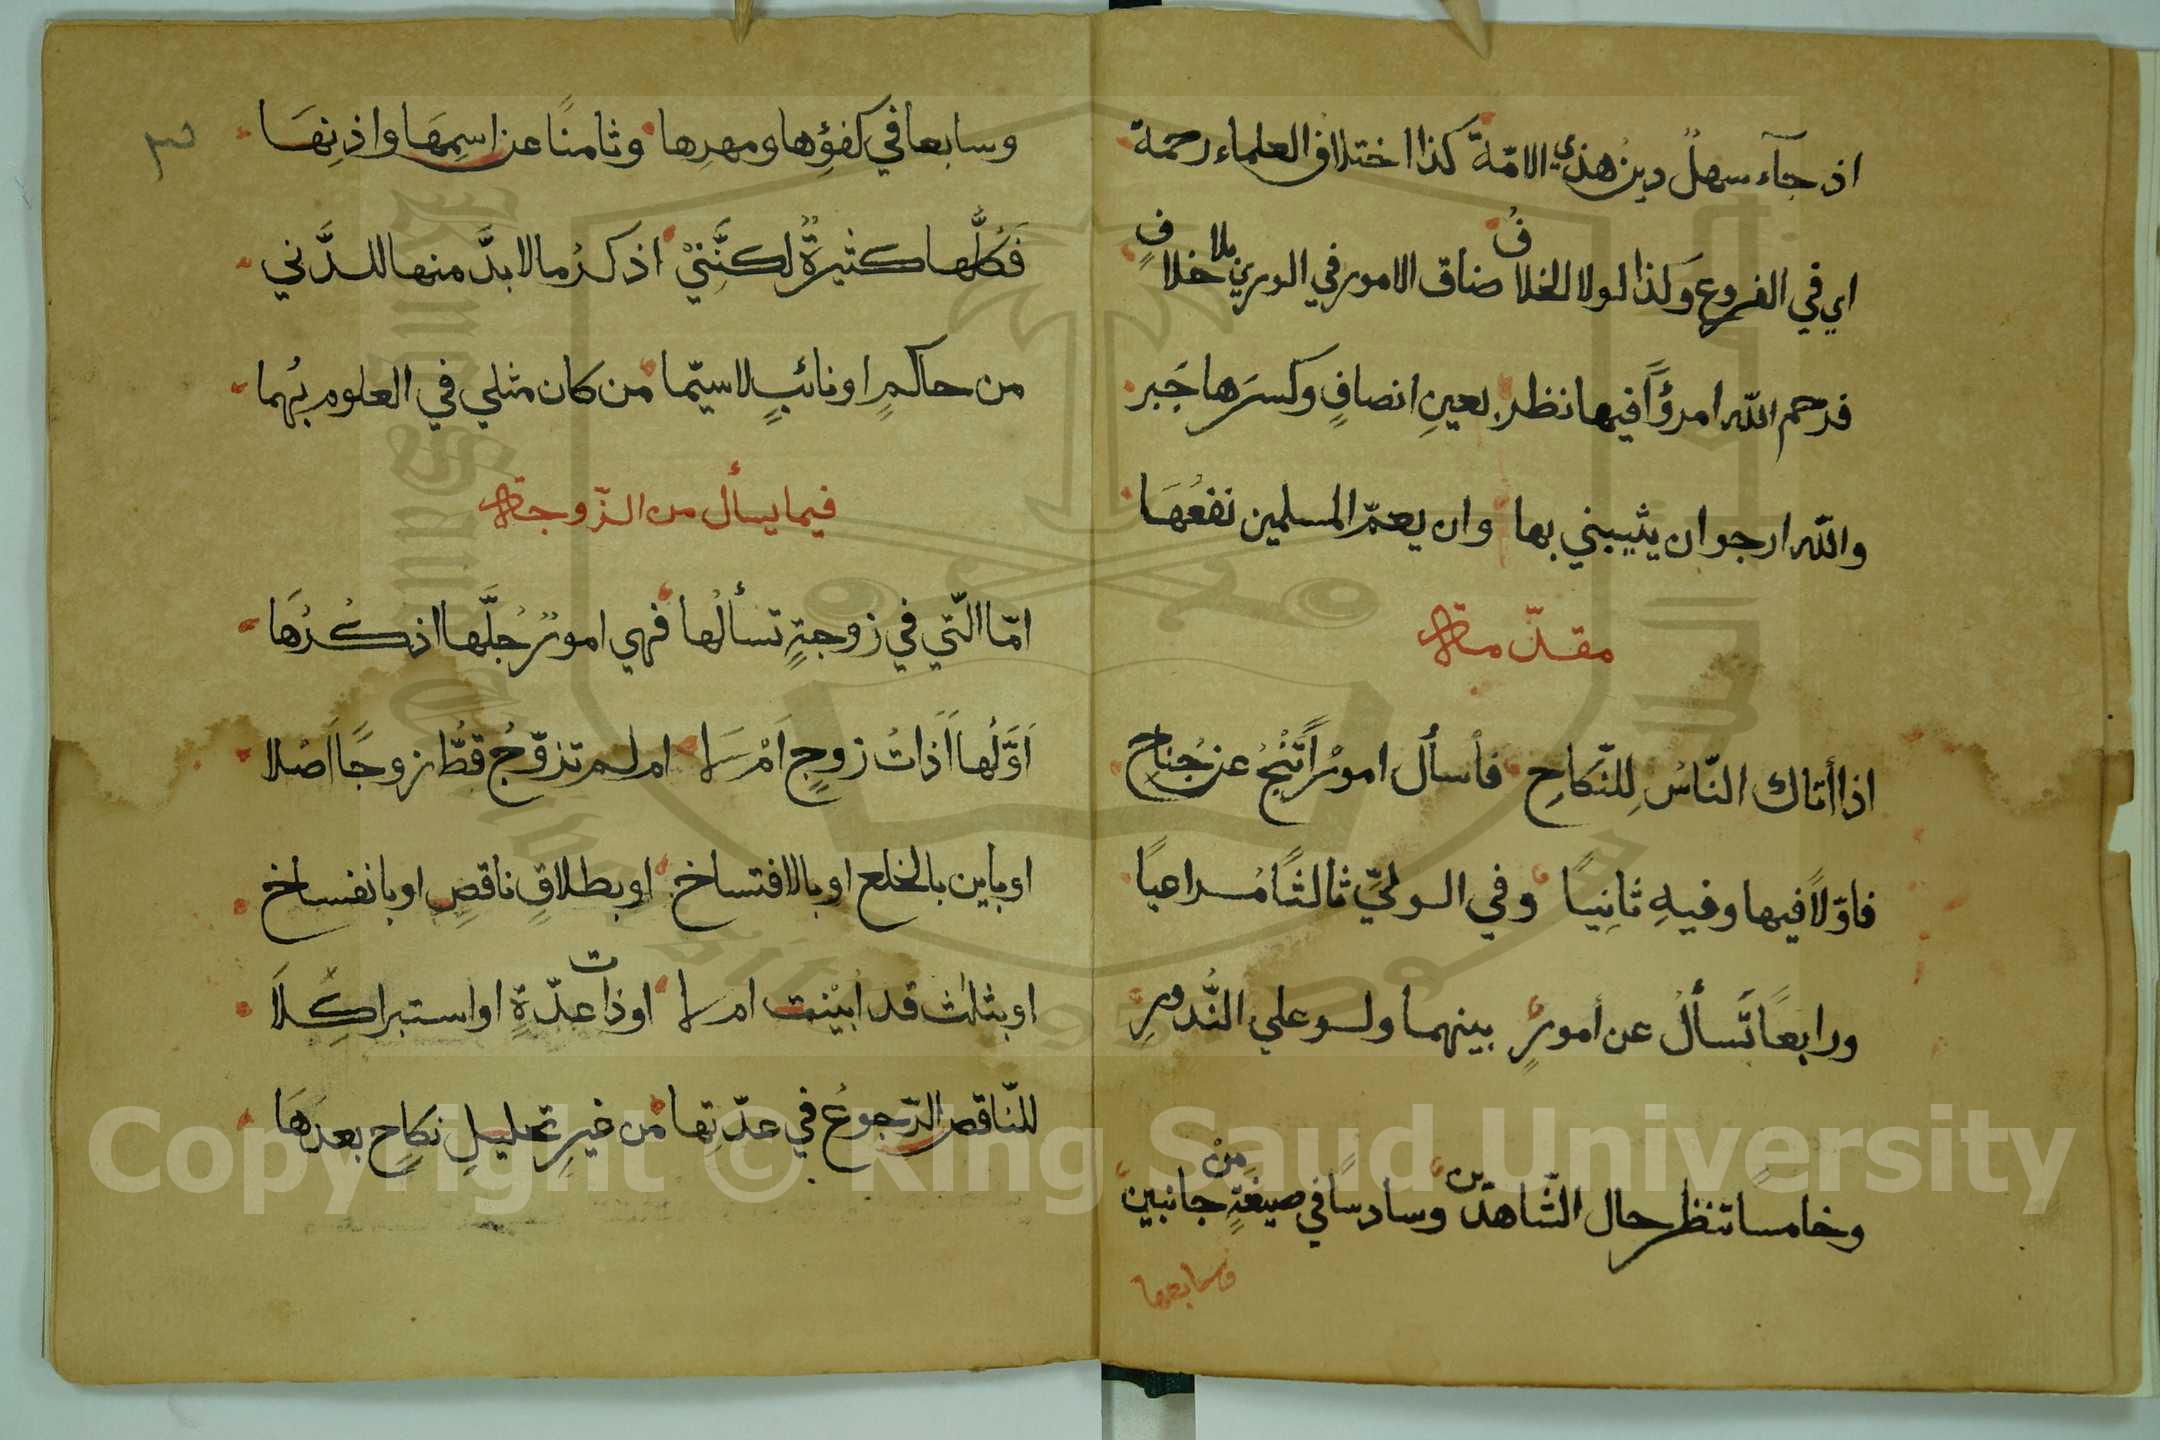 اذ جآء سهلٌ دينُ هذي الامّة كذا اختلاف العلماء رحمة
اي في الفروع وَلذا لولا الخلافُ ضاق الامور في الوري بلا خلافٍ
فرحم الله امرؤًا فيها نظر بعينِ انصافٍ وكسرَها جَبر
والله ارجو ان يثيبني بها وان يعمّ المسلمين نفعُهَا
مقدّمة
اذا أتاك النّاسُ لِلنّكاحِ فأسأل امورًا تُنْجُ عن جُناح
فاوّلاً فيها وفيهِ ثانِيًا وفي الوليّ ثالثًا مُراعيًا
ورابعًا تَسألُ عن أمورٍ بينهما ولو علي النُّدورِ
وخامسًا تنظر حال الشّاهدَين وسادسًا في صيغَةٍ منْ جانبين
وسابعها
٣
وسابعا في كفؤِها ومهرِها وثامنًا عن اسمِهَا واذنِهَا
فَكُلُّها كثيرةٌ لكنَّنيْ اذكرُ ما لا بدَّ منها للدَّني
من حاكمٍ او نائبٍ لا سيّما من كان مثلي في العلوم بُهما
فيما يسأل من الزّوجة
امّا الّتي في زوجةٍ تسألُها فهي امورٌ جُلّها اذكُرُهَا
اَوَّلُها اَذَاتُ زوجٍ اَمْ لَا ام لم تزوّجُ قطُّ زوجًا اَصْلا
او باين بالخلع او بالافتساخ او بطلاقٍ ناقصٍ او بانفساخ
او بثلث قد ابيْنت ام لا او ذات عدّةٍ او استبراكِلَا
للنّاقص الرّجوعُ في عدّتِها من غيرِ تحليلِ نكاحٍ بعدَهَا
Copyright © King Saud University